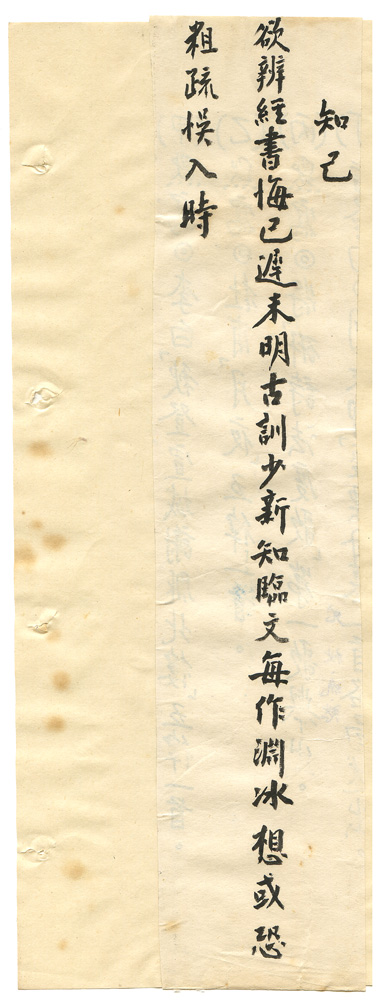 知己
欲辨經書悔已遲未明古訓少新知臨文每作淵冰想或恐
粗疏悮入時